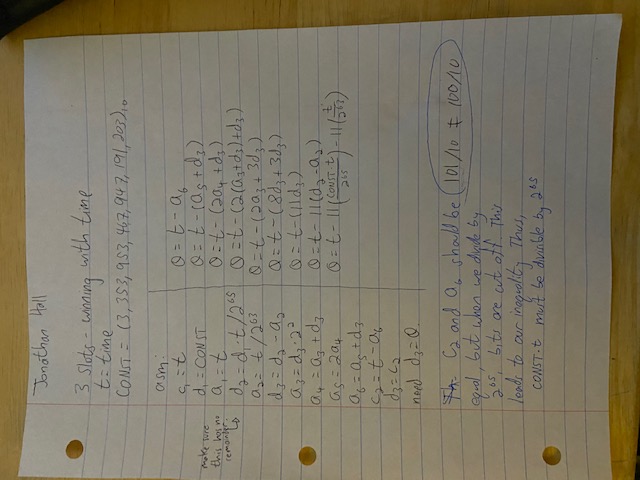 Jonathan Hall
3 slots - winning with time
t = time
CONST = (3,353,953,467,947,191,203)₁₀
asm:
c₁ = t
d₁ = CONST
a₁ = t
make sure
this has no
remainder. ↳
d₂ = d₁ · t / 2⁶⁵
a₂ = t / 2⁶³
d₃ = d₂ - a₂
a₃ = d₃ · 2²
a₄ = a₃ + d₃
a₅ = 2a₄
a₆ = a₅ + d₃
c₂ = t - a₆
d₃ = c₂
need d₃ = 0.
0 = t - a₆
0 = t - (a₅ + d₃)
0 = t - (2a₄ + d₃)
0 = t - (2(a₃ + d₃) + d₃)
0 = t - (2a₃ + 3d₃)
0 = t - (8d₃ + 3d₃)
0 = t - (11d₃)
0 = t - 11(d₂ - a₂)
0 = t - 11(CONST·t / 2⁶⁵) - 11(t / 2⁶³)
c₂ and a₆ should be
equal, but when we divide by
2⁶⁵, bits are cut off. This
leads to our inequality. Thus,
CONST·t must be divisible by 2⁶⁵
101/10 ≠ 100/10